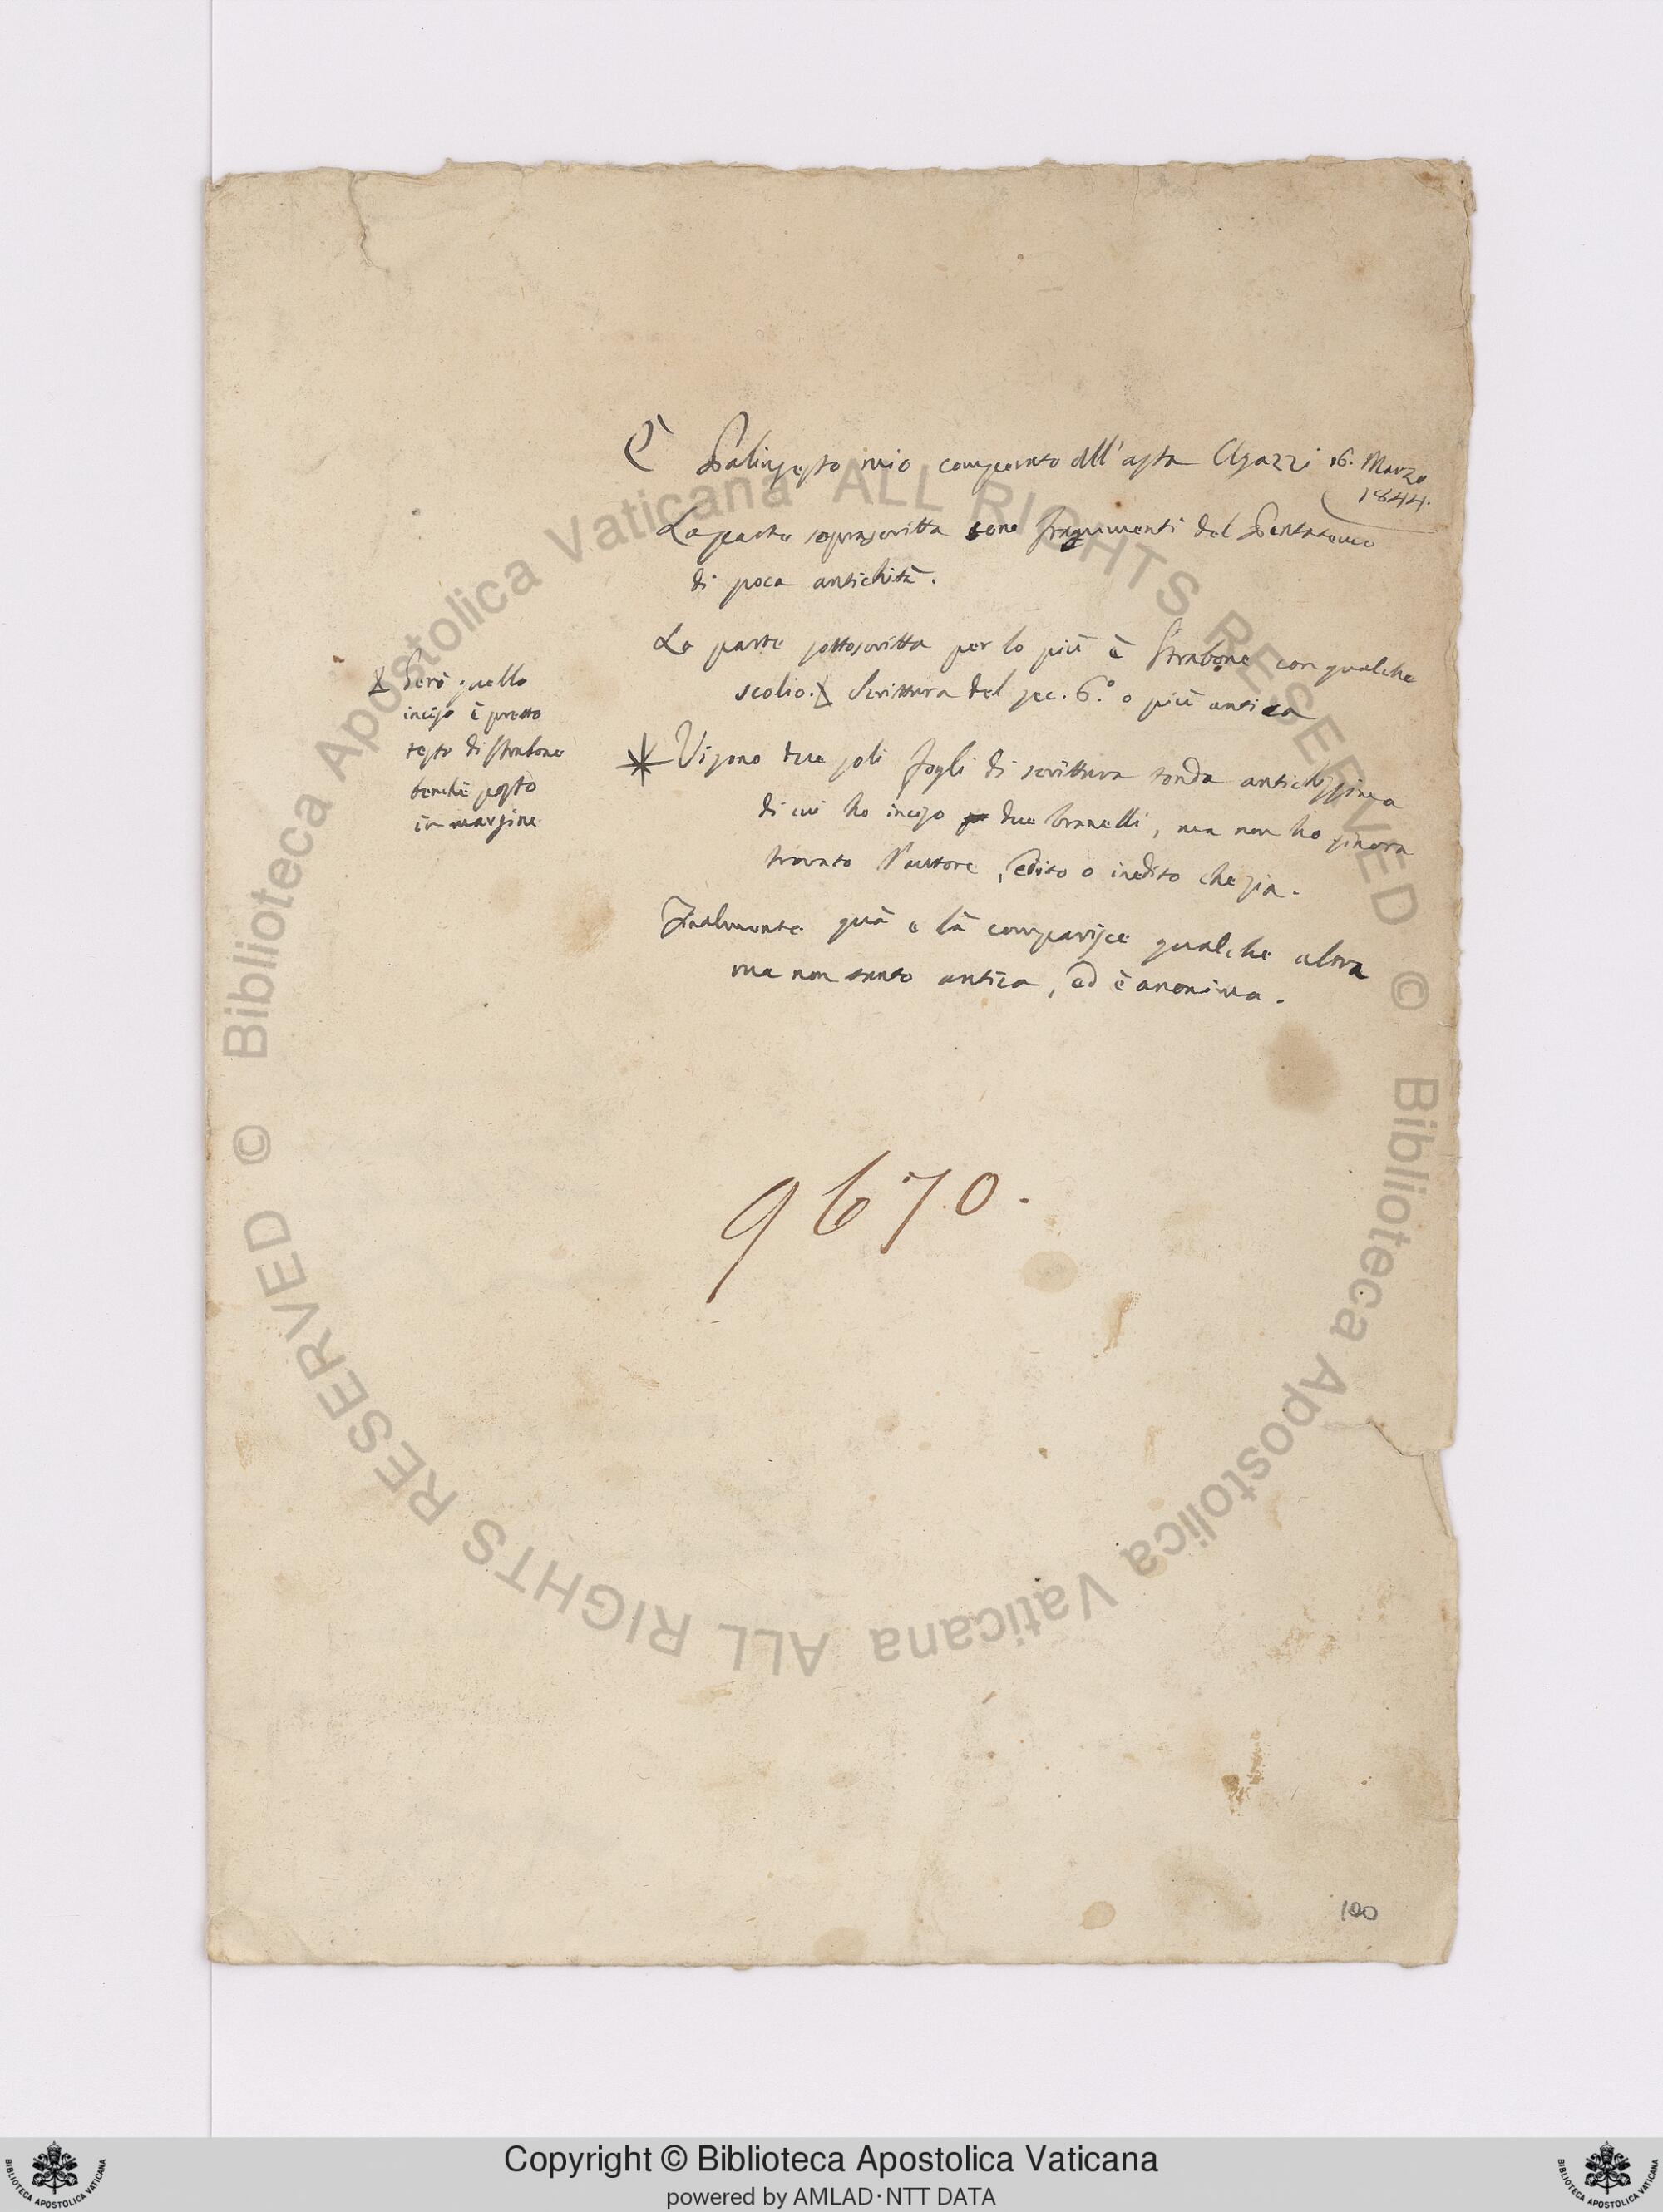 È Palinsesto mio comperato all'asta Agazzi 16. Marzo
1844.
La parte soprascritta sono frammenti del Pentateuco
di poca antichità.
La parte sottoscritta per lo più è Strabone con qualche
scolio. Scrittura del sec. 6.° o più antica
Però quello
inciso è pretto
testo di Strabone
benchè posto
in margine
Vi sono due soli fogli di scrittura tonda antichissima
di cui ho inciso due branelli, ma non ho finora
trovato l'autore, edito o inedito che sia.
Finalmente quà e là comparisce qualche altra
ma non tanto antica, ed è anonima.
9670.
100
© Biblioteca Apostolica Vaticana ALL RIGHTS RESERVED © Biblioteca Apostolica Vaticana ALL RIGHTS RESERVED
Copyright © Biblioteca Apostolica Vaticana
powered by AMLAD·NTT DATA
BIBLIOTECA APOSTOLICA VATICANA
BIBLIOTECA APOSTOLICA VATICANA